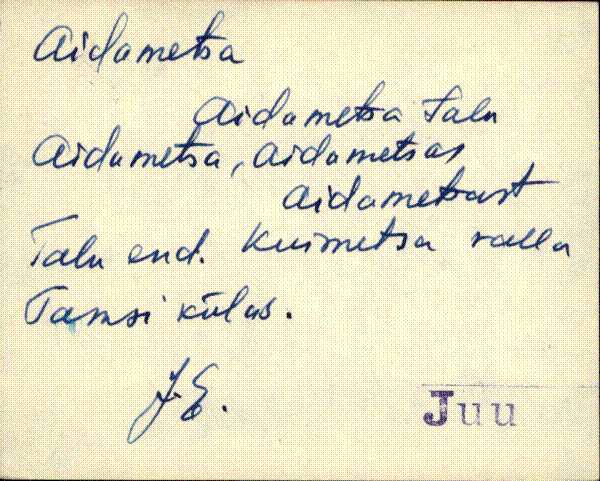 Aidametsa
Aidametsa talu
Aidametsa, Aidametsas
Aidametsast
Talu end. Kuimetsa valla
Tamsi külas.
J. E.
Juu